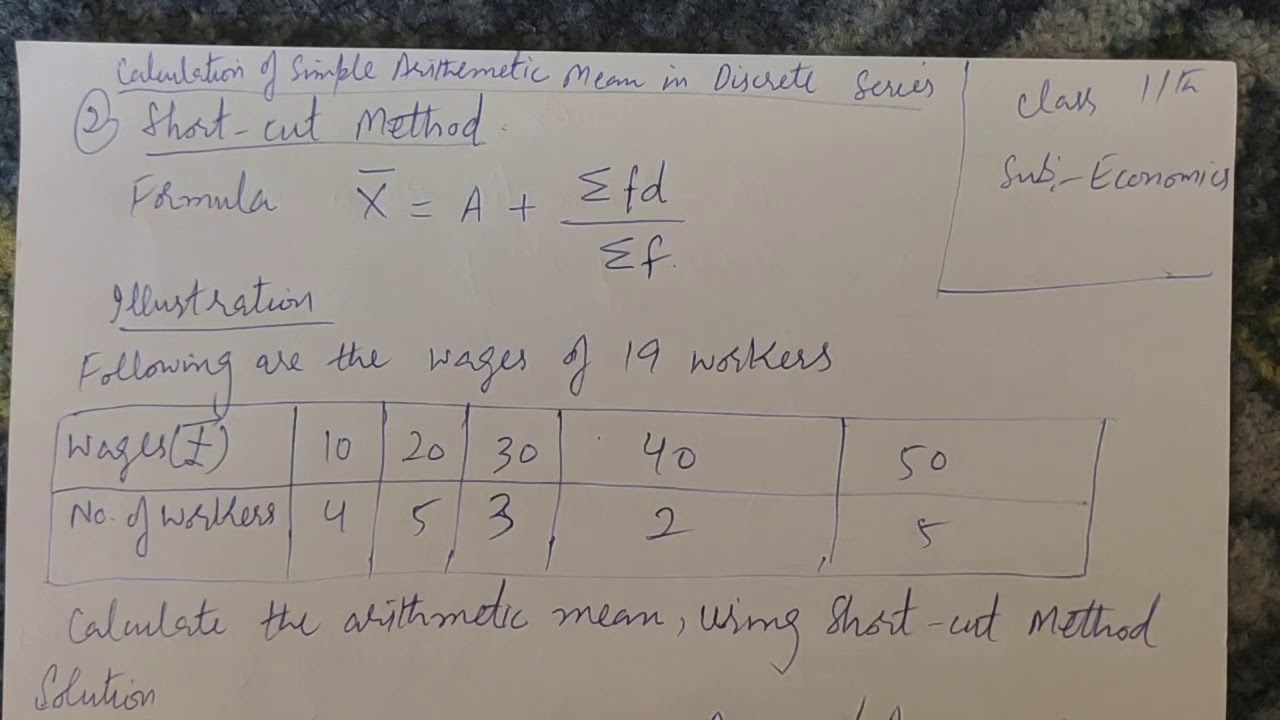 Calculation of Simple Arithemetic Mean in Discrete Series
② Short-cut Method.
Formula X̄ = A + Σfd / Σf.
Class 11th
Sub:- Economics
Illustration
Following are the wages of 19 workers
Wages(₹) 10 20 30 40 50
No. of workers 4 5 3 2 5
Calculate the arithmetic mean, using Short-cut Method
Solution